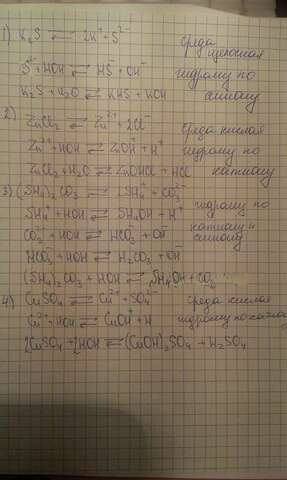 1) K₂S ⇌ 2K⁺ + S²⁻ среда щелочная
S²⁻ + HOH ⇌ HS⁻ + OH⁻ гидролиз по
K₂S + H₂O ⇌ KHS + KOH аниону
2) ZnCl₂ ⇌ Zn²⁺ + 2Cl⁻ среда кислая
Zn²⁺ + HOH ⇌ ZnOH⁺ + H⁺ гидролиз по
ZnCl₂ + H₂O ⇌ ZnOHCl + HCl катиону
3) (NH₄)₂CO₃ ⇌ 2NH₄⁺ + CO₃²⁻
NH₄⁺ + HOH ⇌ NH₄OH + H⁺ гидролиз по
CO₃²⁻ + HOH ⇌ HCO₃⁻ + OH⁻ катиону и аниону
HCO₃⁻ + HOH ⇌ H₂CO₃ + OH⁻
(NH₄)₂CO₃ + HOH ⇌ NH₄OH + CO₂
4) CuSO₄ ⇌ Cu²⁺ + SO₄²⁻ среда кислая
Cu²⁺ + HOH ⇌ CuOH⁺ + H гидролиз по
2CuSO₄ + 2HOH ⇌ (CuOH)₂SO₄ + H₂SO₄